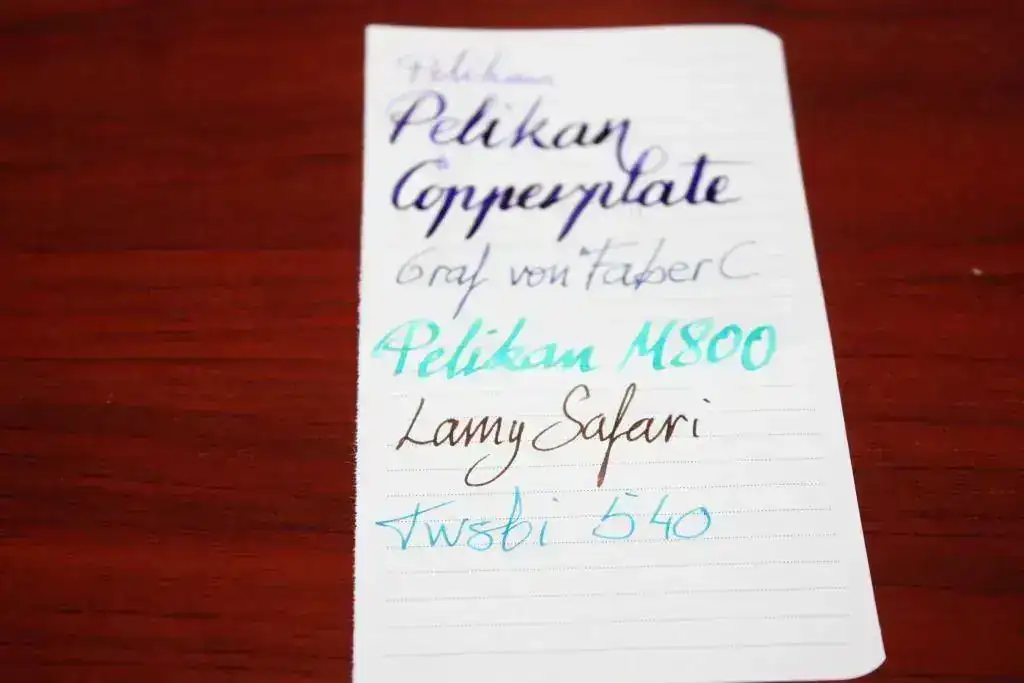 Pelikan
Pelikan
Copperplate
Graf von Faber C
Pelikan M800
Lamy Safari
Twsbi 540